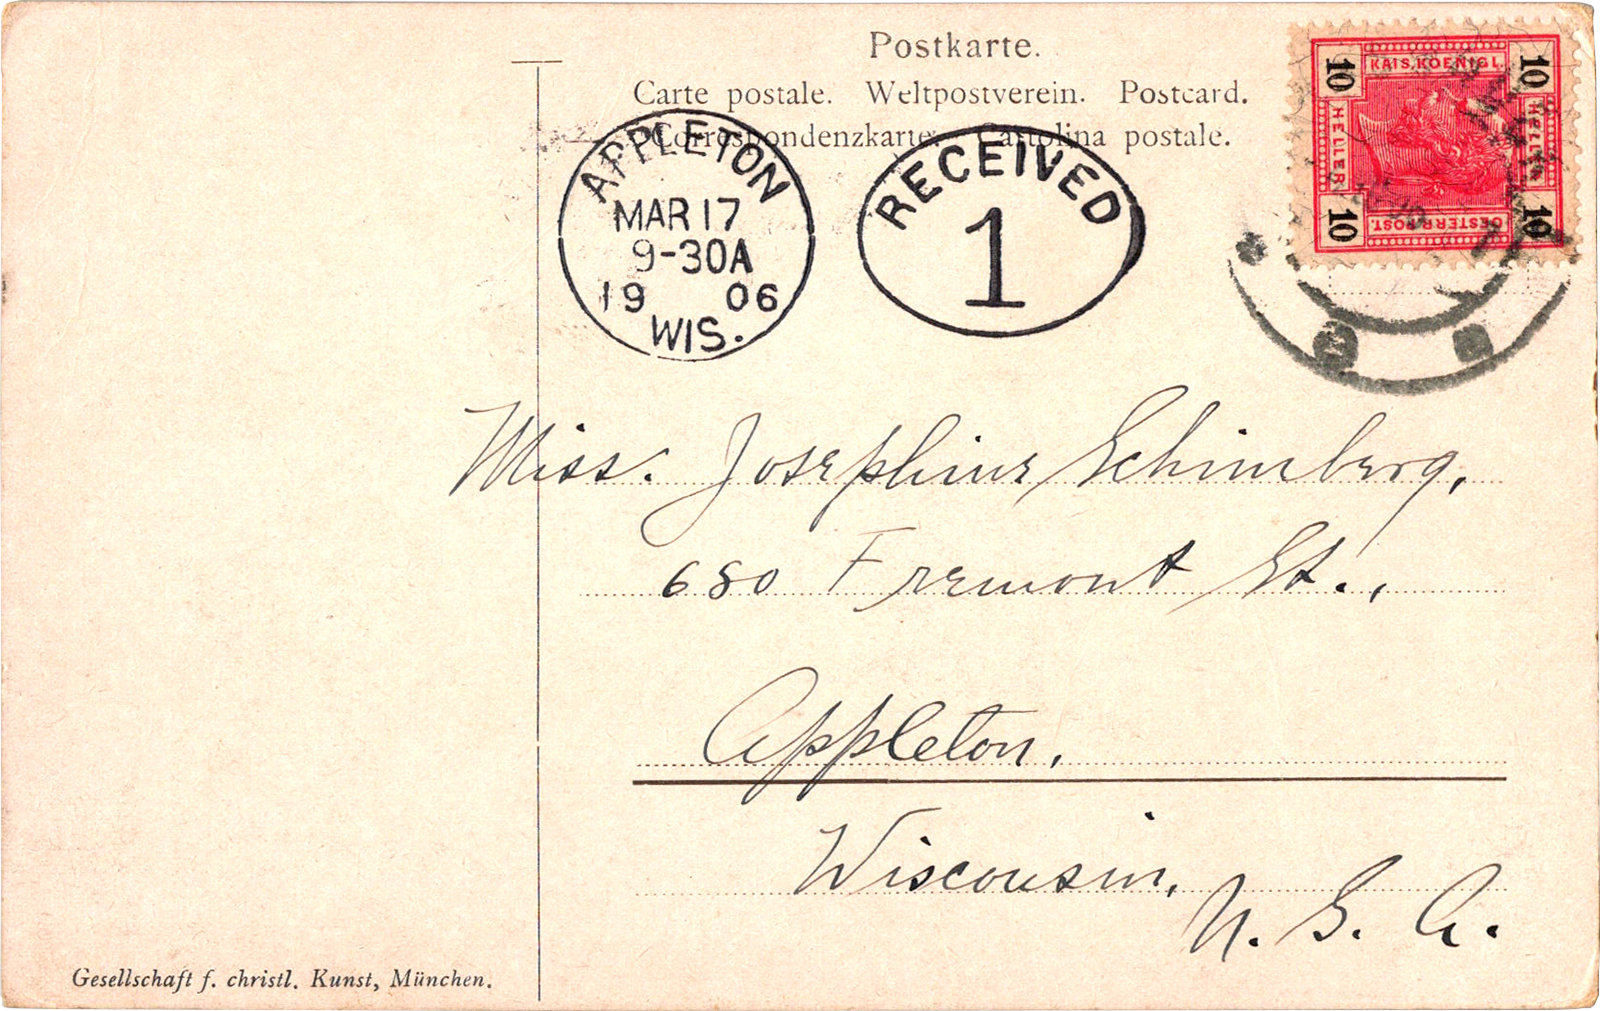 Postkarte.
Carte postale. Weltpostverein. Postcard.
Correspondenzkarte. Cartolina postale.
KAIS. KOENIGL.
10 10
HELLER HELLER
10 10
OESTERR. POST.
APPLETON
MAR 17
9-30A
19 06
WIS.
RECEIVED
1
Miss. Josephine Schimberg,
680 Fremont St.,
Appleton.
Wisconsin,
U. S. A.
Gesellschaft f. christl. Kunst, München.